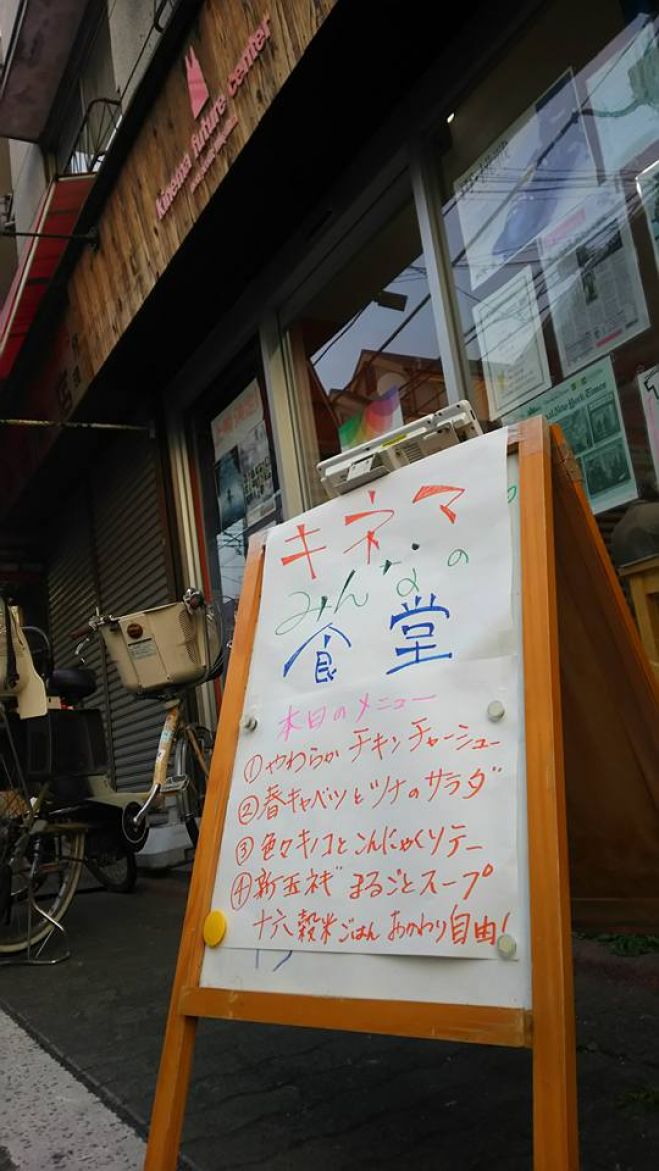 kinema future center
キネマ
みんなの
食堂
本日のメニュー
①やわらかチキンチャーシュー
②春キャベツとツナのサラダ
③色々キノコとこんにゃくソテー
④新玉ネギまるごとスープ
十六穀米ごはんおかわり自由!